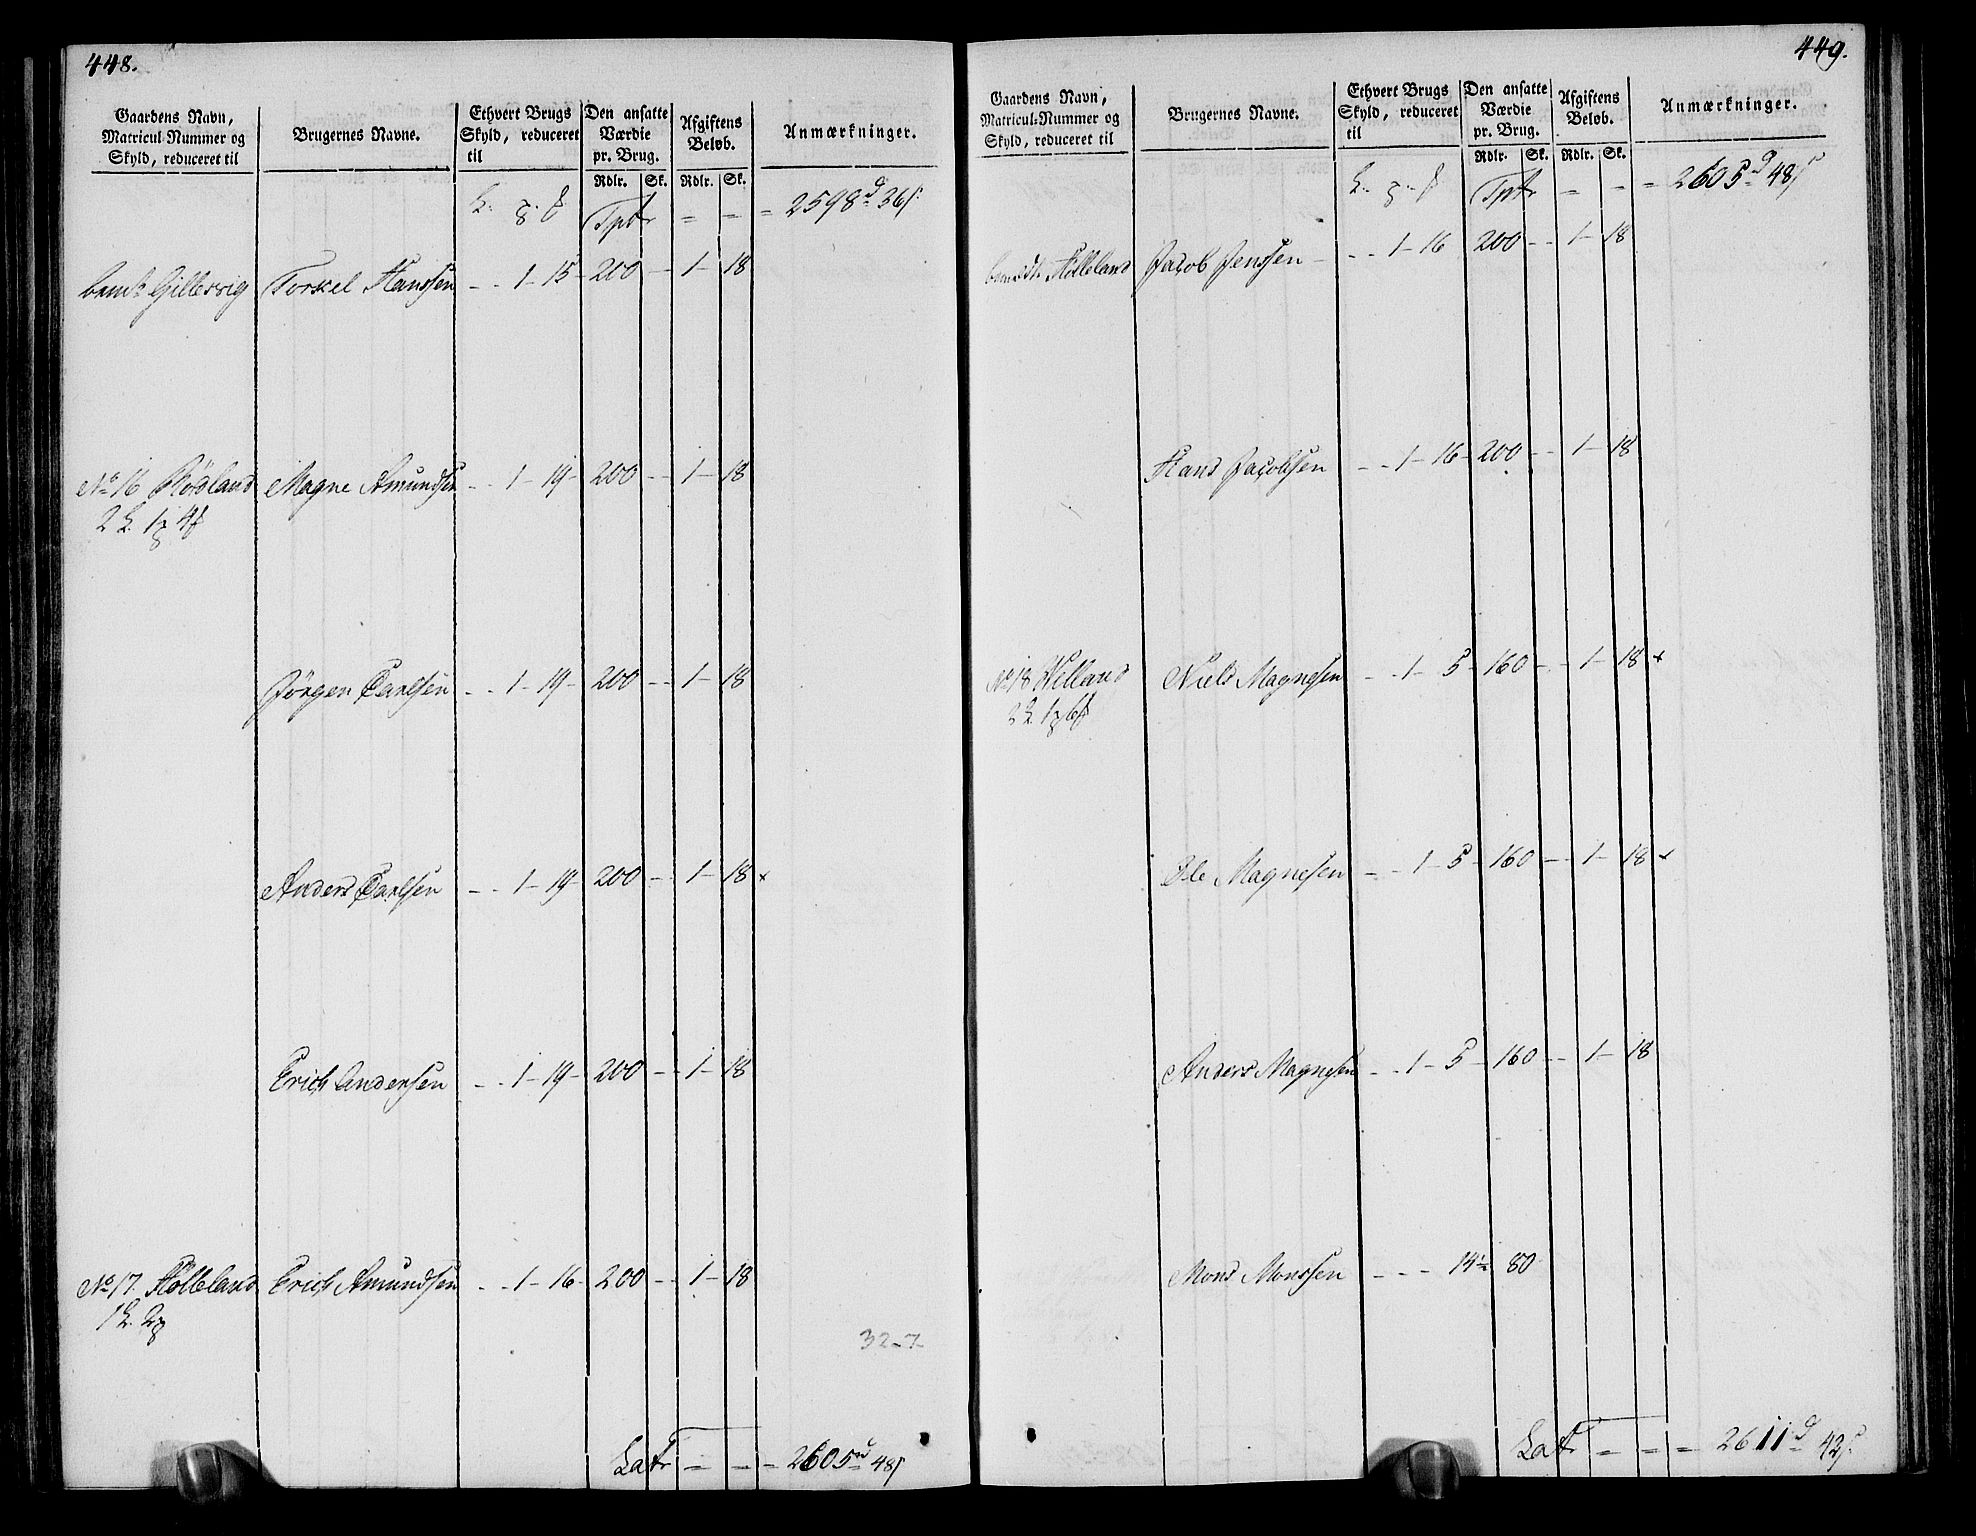 448.
Gaardens Navn, Matricul-Nummer og Skyld, reduceret til | Brugernes Navne. | Ethvert Brugs Skyld, reduceret til | Den ansatte Værdie pr. Brug. Rdlr. Sk. | Afgiftens Beløb. Rdlr. Sk. | Anmærkninger.
Tptr = = = 2598 d 36 s
bemte Gillesvig Torkel Hanssen - - 1 - 15 - 200 - - 1 - 18
No 16 Rödland Magne Amundsen - - 1 - 19 - 200 - - 1 - 18
2 L. 1 4
Jörgen Carlsen - - 1 - 19 - 200 - - 1 - 18
Anders Carlsen - - 1 - 19 - 200 - - 1 - 18 x
Erich Andersen - - 1 - 19 - 200 - - 1 - 18
No 17. Kolleland Erich Amundsen - - 1 - 16 - 200 - - 1 - 18
1 L. 2
32-7
Latr = = = 2605 d 48 s
449.
Gaardens Navn, Matricul-Nummer og Skyld, reduceret til | Brugernes Navne. | Ethvert Brugs Skyld, reduceret til | Den ansatte Værdie pr. Brug. Rdlr. Sk. | Afgiftens Beløb. Rdlr. Sk. | Anmærkninger.
Tptr = = = 2605 d 48 s
bemeldte Kolleland Jacob Jenssen - - - 1 - 16 200 - - 1 - 18
Hans Jacobsen - - 1 - 16 - 200 - - 1 - 18
No 18 Helland Niels Magnesen - - 1 - 5 - 160 - - 1 - 18 x
2 L. 1 6
Ole Magnesen - - 1 - 5 - 160 - - 1 - 18 x
Anders Magnesen - - 1 - 5 - 160 - - 1 - 18
Mons Monssen - - - 14½ 80
Latr = = = 2611 d 42 s